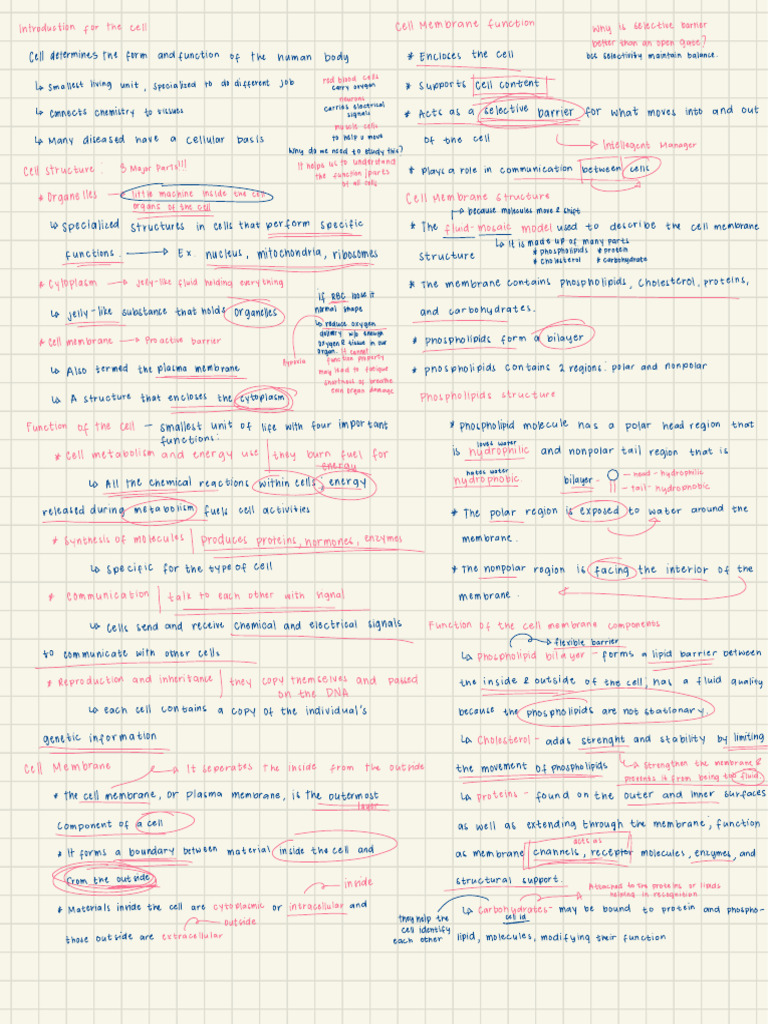 Introduction for the cell
Cell determines the form and function of the human body
↳ smallest living unit, specialized to do different job
red blood cells
carry oxygen
↳ connects chemistry to tissues
neurons
carries electrical
signals
↳ Many diseased have a cellular basis
muscle cells
to help u move
Why do we need to study this?
It helps us to understand
the function/parts
of all cells
Cell structure: 3 Major Parts!!!
* Organelles → little machine inside the cell
organs of the cell
↳ specialized structures in cells that perform specific
functions. → Ex. nucleus, mitochondria, ribosomes
* Cytoplasm → jelly-like fluid holding everything
↳ jelly-like substance that holds organelles
* Cell membrane → Proactive barrier
↳ Also termed the plasma membrane
↳ A structure that encloses the cytoplasm
if RBC loose it
normal shape
↳ reduce oxygen
delivery w/o enough
oxygen & tissue in our
organ. It cannot
function properly
may lead to fatigue
shortness of breathe
can organ damage
Hypoxia
Function of the cell – smallest unit of life with four important
functions:
* Cell metabolism and energy use | they burn fuel for
energy
↳ All the chemical reactions within cells, energy
released during metabolism fuels cell activities
* Synthesis of molecules | produces proteins, hormones, enzymes
↳ specific for the type of cell
* Communication | talk to each other with signal
↳ Cells send and receive chemical and electrical signals
to communicate with other cells
* Reproduction and inheritance | they copy themselves and passed
on the DNA
↳ each cell contains a copy of the individual's
genetic information
Cell Membrane → It seperates the inside from the outside
* the cell membrane, or plasma membrane, is the outermost
layer
component of a cell
* It forms a boundary between material inside the cell and
from the outside.
inside
* Materials inside the cell are cytoplasmic or intracellular and
outside
those outside are extracellular
Cell Membrane function
Why is selective barrier
better than an open gate?
bcs selectivity maintain balance.
* Encloses the cell
* Supports cell content
* Acts as a selective barrier for what moves into and out
of the cell
→ Intelligent Manager
* Plays a role in communication between cells
Cell Membrane Structure
→ because molecules move & shift
* The fluid-mosaic model used to describe the cell membrane
structure
↳ It is made up of many parts
* phospholipids * protein
* cholesterol * carbohydrate
* The membrane contains phospholipids, cholesterol, proteins,
and carbohydrates.
* phospholipids form a bilayer
* phospholipids contains 2 regions: polar and nonpolar
Phospholipids structure
* phospholipid molecule has a polar head region that
loves water
is hydrophilic and nonpolar tail region that is
hates water
hydrophobic.
bilayer -
→ head-hydrophilic
→ tail-hydrophobic
* The polar region is exposed to water around the
membrane.
* The nonpolar region is facing the interior of the
membrane.
Function of the cell membrane components
→ flexible barrier
↳ Phospholipid bilayer – forms a lipid barrier between
the inside & outside of the cell, has a fluid quality
because the phospholipids are not stationary.
↳ Cholesterol – adds strenght and stability by limiting
the movement of phospholipids
↳ Strengthen the membrane &
prevents it from being too fluid.
↳ Proteins – found on the outer and inner surfaces
as well as extending through the membrane; function
acts as
as membrane channels, receptor molecules, enzymes, and
structural support.
Attached to the proteins or lipids
helping in recognition
↳ Carbohydrates- may be bound to protein and phospho-
cell id
they help the
cell identify
each other
lipid, molecules, modifying their function